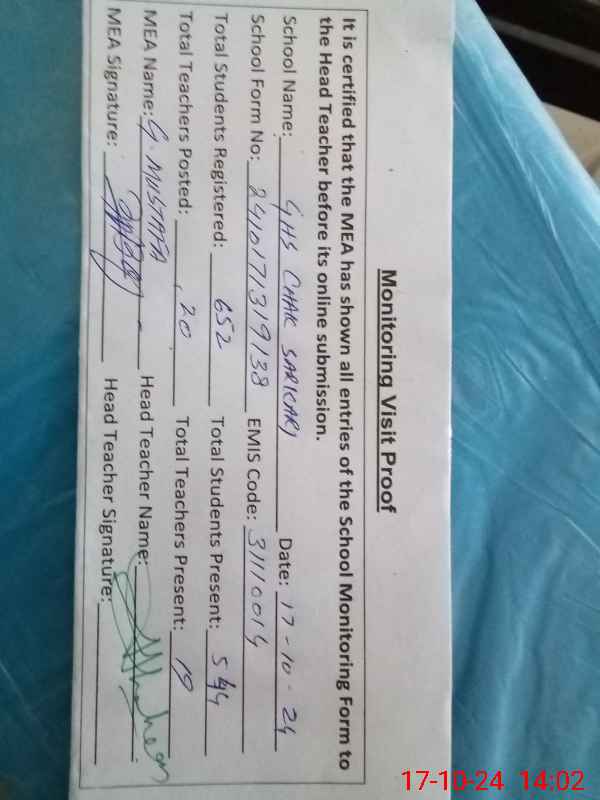 Monitoring Visit Proof
It is certified that the MEA has shown all entries of the School Monitoring Form to
the Head Teacher before its online submission.
School Name: GHS CHAK SARKARI Date: 17-10-24
School Form No: 2410171319138 EMIS Code: 31110014
Total Students Registered: 652 Total Students Present: 544
Total Teachers Posted: 20 Total Teachers Present: 19
MEA Name: G. MUSTAFA Head Teacher Name:
MEA Signature: Head Teacher Signature:
17-10-24 14:02